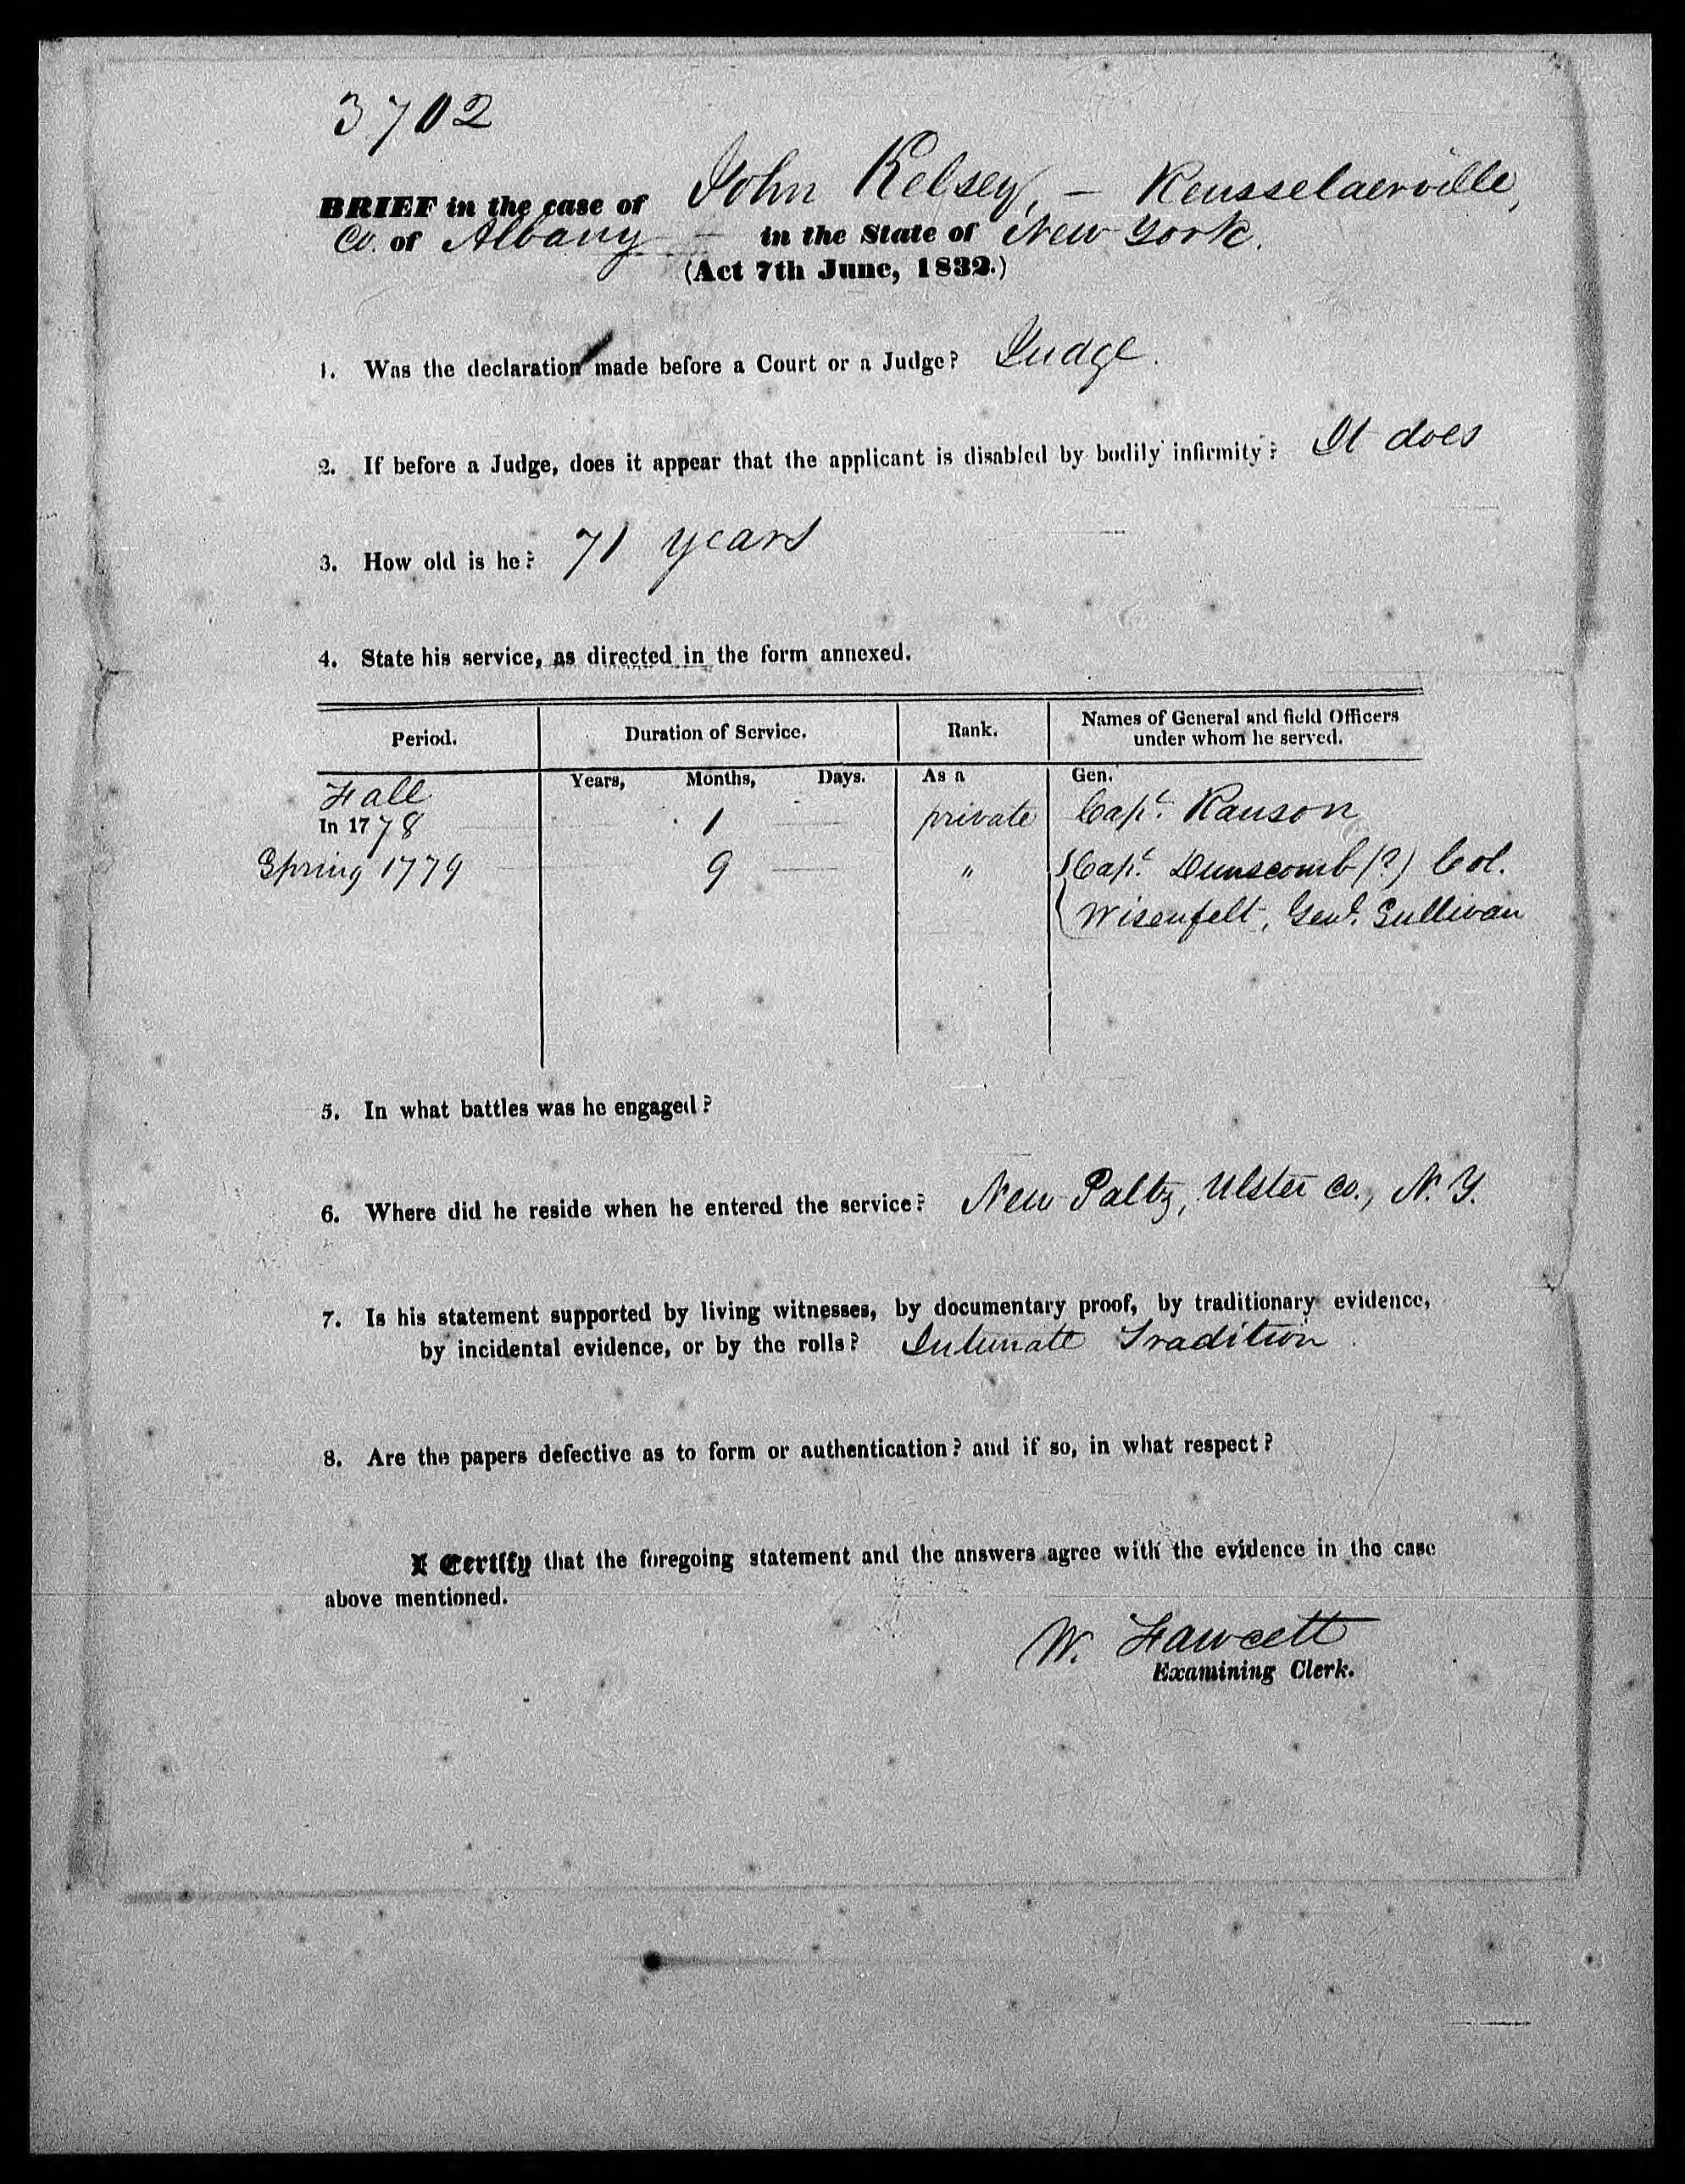 3702
BRIEF in the case of John Kelsey, - Rensselaerville,
Co. of Albany - in the State of New York.
(Act 7th June, 1832.)
1. Was the declaration made before a Court or a Judge? Judge.
2. If before a Judge, does it appear that the applicant is disabled by bodily infirmity? It does
3. How old is he? 71 years
4. State his service, as directed in the form annexed.
Period. Duration of Service. Rank. Names of General and field Officers under whom he served.
Years, Months, Days. As a Gen.
Fall
In 1778 1 private Capt. Ranson
Spring 1779 9 " Capt. Dunscomb (?) Col.
Wisenfelt, Genl. Sullivan
5. In what battles was he engaged?
6. Where did he reside when he entered the service? New Paltz, Ulster co., N. Y.
7. Is his statement supported by living witnesses, by documentary proof, by traditionary evidence,
by incidental evidence, or by the rolls? Intimate Tradition.
8. Are the papers defective as to form or authentication? and if so, in what respect?
I Certify that the foregoing statement and the answers agree with the evidence in the case
above mentioned.
W. Fawcett
Examining Clerk.